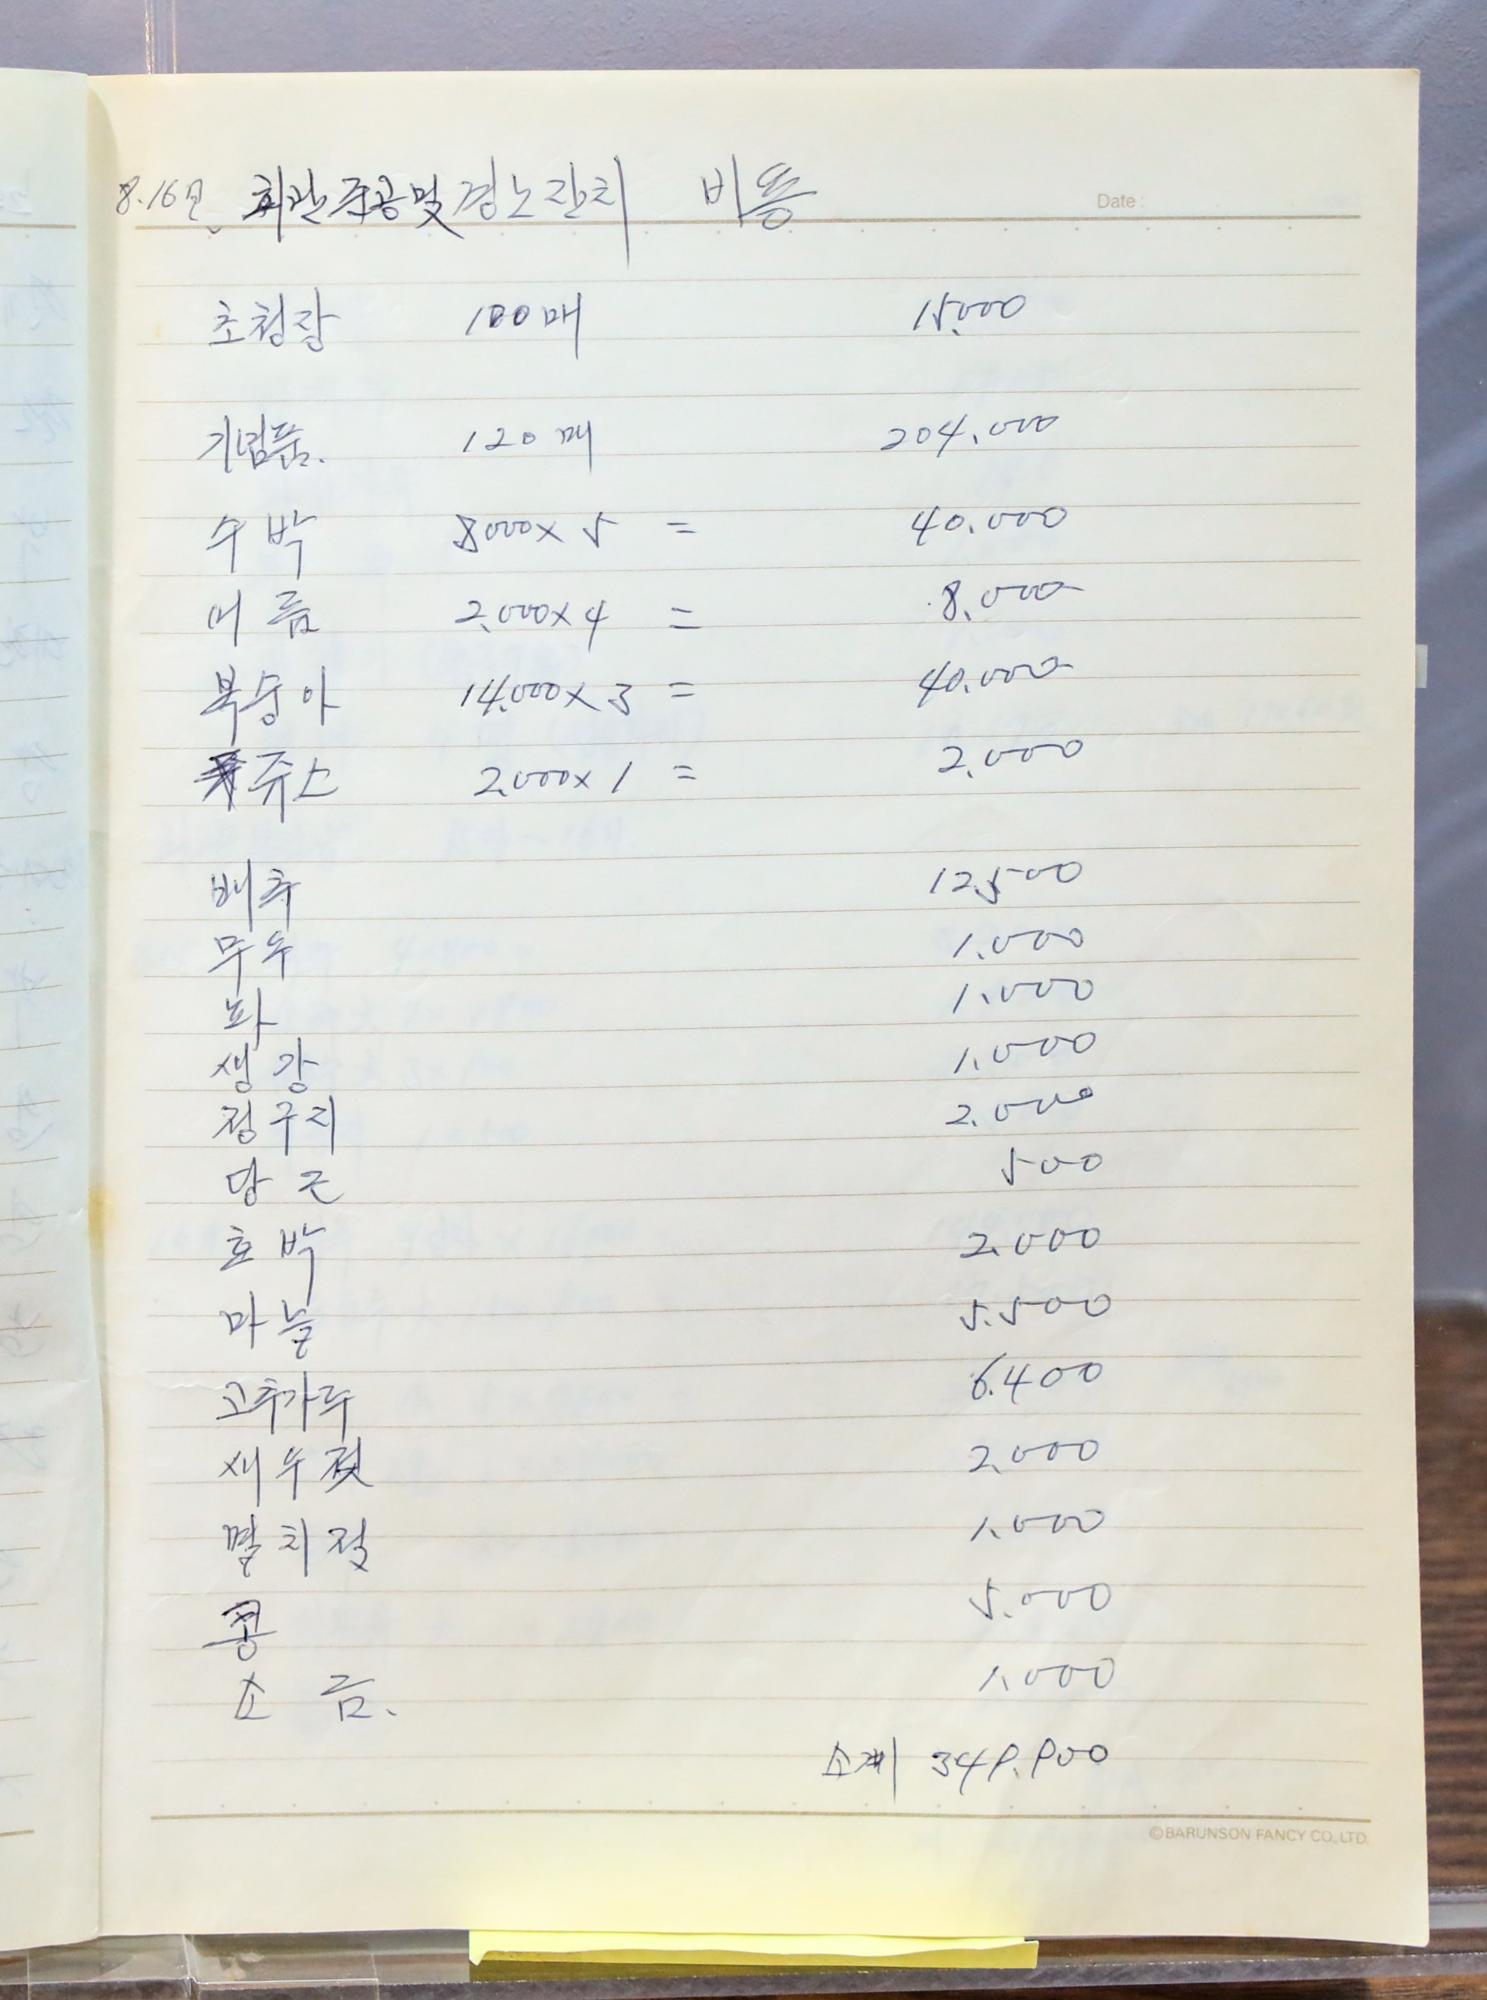 8.16일 회관준공및경노잔치 비용
Date :
초청장 100매 15.000
기념품. 120매 204.000
수박 8000×5 = 40.000
어름 2.000×4 = 8.000
복숭아 14.000×3 = 40.000
쥬스 2.000×1 = 2.000
배추 12.500
무우 1.000
파 1.000
생강 1.000
정구지 2.000
당근 500
호박 2.000
마늘 5.500
고추가루 6.400
새우젓 2.000
멸치젖 1.000
콩 5.000
소금. 1.000
소계 349.900
©BARUNSON FANCY CO.,LTD.